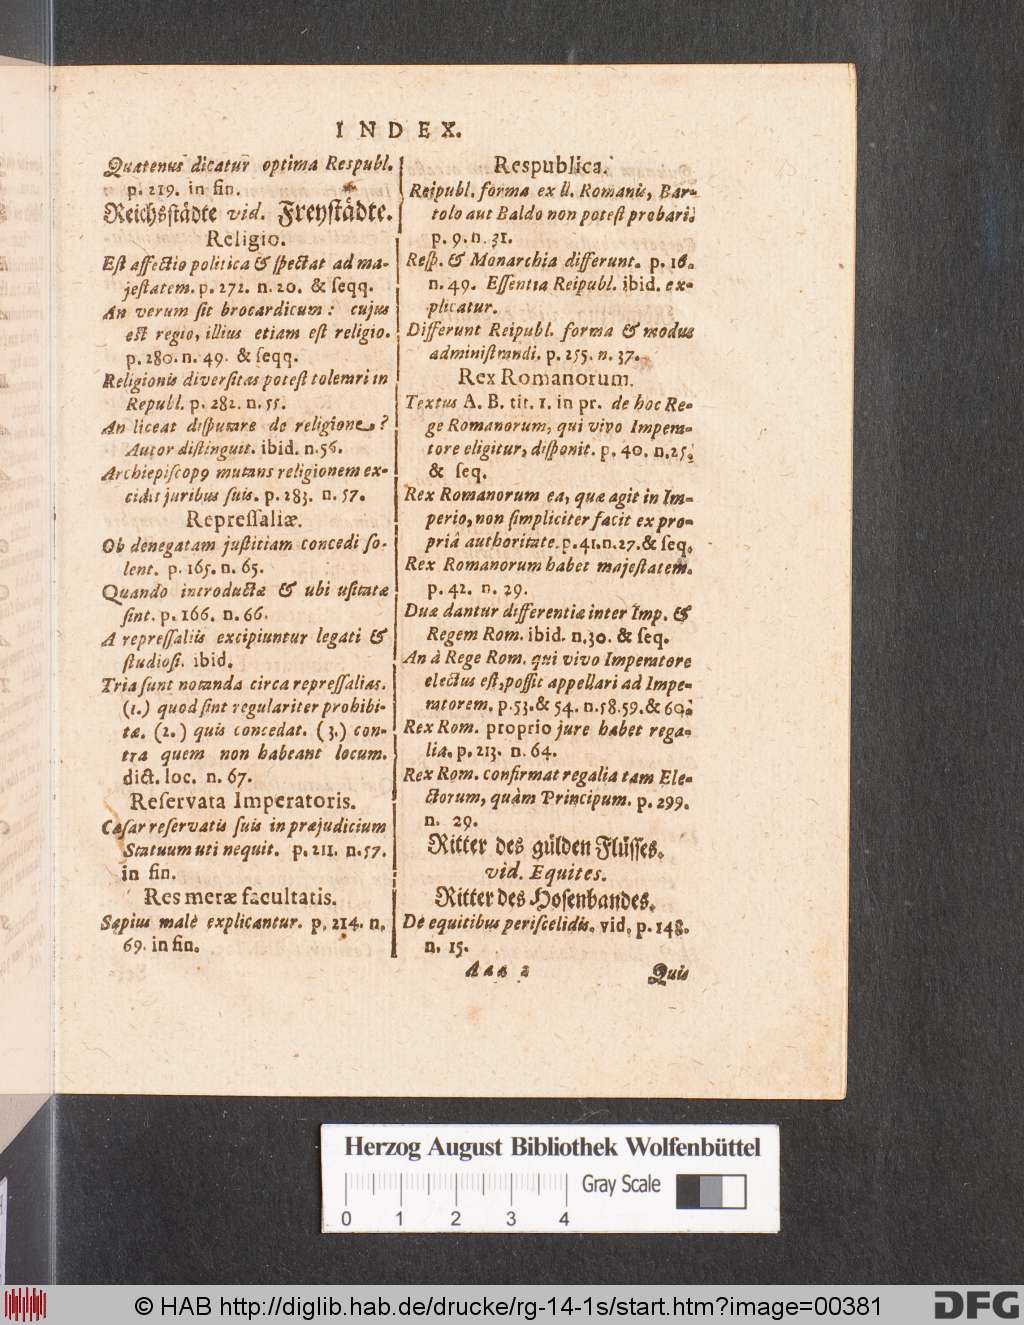 INDEX.
Quatenus dicatur optima Respubl.
p. 219. in fin.
Reichsstädte vid. Freystädte.
Religio.
Est affectio politica & spectat ad ma-
jestatem. p. 272. n. 20. & seqq.
An verum sit brocardicum: cujus
est regio, illius etiam est religio.
p. 280. n. 49. & seqq.
Religionis diversitas potest tolerari in
Republ. p. 282. n. 55.
An liceat disputare de religione?
Autor distinguit. ibid. n. 56.
Archiepiscopꝰ mutans religionem ex-
cidit juribus suis. p. 283. n. 57.
Repressaliæ.
Ob denegatam justitiam concedi so-
lent. p. 165. n. 65.
Quando introductæ & ubi usitatæ
sint. p. 166. n. 66.
A repressaliis excipiuntur legati &
studiosi. ibid.
Tria sunt notanda circa repressalias.
(1.) quod sint regulariter prohibi-
tæ. (2.) quis concedat. (3.) con-
tra quem non habeant locum.
dict. loc. n. 67.
Reservata Imperatoris.
Cæsar reservatis suis in præjudicium
Statuum uti nequit. p. 211. n. 57.
in fin.
Res meræ facultatis.
Sæpius malè explicantur. p. 214. n.
69. in fin.
Respublica.
Reipubl. forma ex ll. Romanis, Bar-
tolo aut Baldo non potest probari.
p. 9. n. 31.
Resp. & Monarchia differunt. p. 16.
n. 49. Essentia Reipubl. ibid. ex-
plicatur.
Differunt Reipubl. forma & modus
administrandi. p. 255. n. 37.
Rex Romanorum.
Textus A. B. tit. 1. in pr. de hoc Re-
ge Romanorum, qui vivo Impera-
tore eligitur, disponit. p. 40. n. 25.
& seq.
Rex Romanorum ea, quæ agit in Im-
perio, non simpliciter facit ex pro-
priâ authoritate. p. 41. n. 27. & seq.
Rex Romanorum habet majestatem.
p. 42. n. 29.
Duæ dantur differentiæ inter Imp. &
Regem Rom. ibid. n. 30. & seq.
An à Rege Rom. qui vivo Imperatore
electus est, possit appellari ad Impe-
ratorem. p. 53. & 54. n. 58. 59. & 60.
Rex Rom. proprio jure habet rega-
lia. p. 213. n. 64.
Rex Rom. confirmat regalia tam Ele-
ctorum, quàm Principum. p. 299.
n. 29.
Ritter des gülden Flüsses.
vid. Equites.
Ritter des Hosenbandes.
De equitibus periscelidis. vid. p. 148.
n. 15.
Aaa 2 Quis
Herzog August Bibliothek Wolfenbüttel
Gray Scale
0 1 2 3 4
© HAB http://diglib.hab.de/drucke/rg-14-1s/start.htm?image=00381
DFG